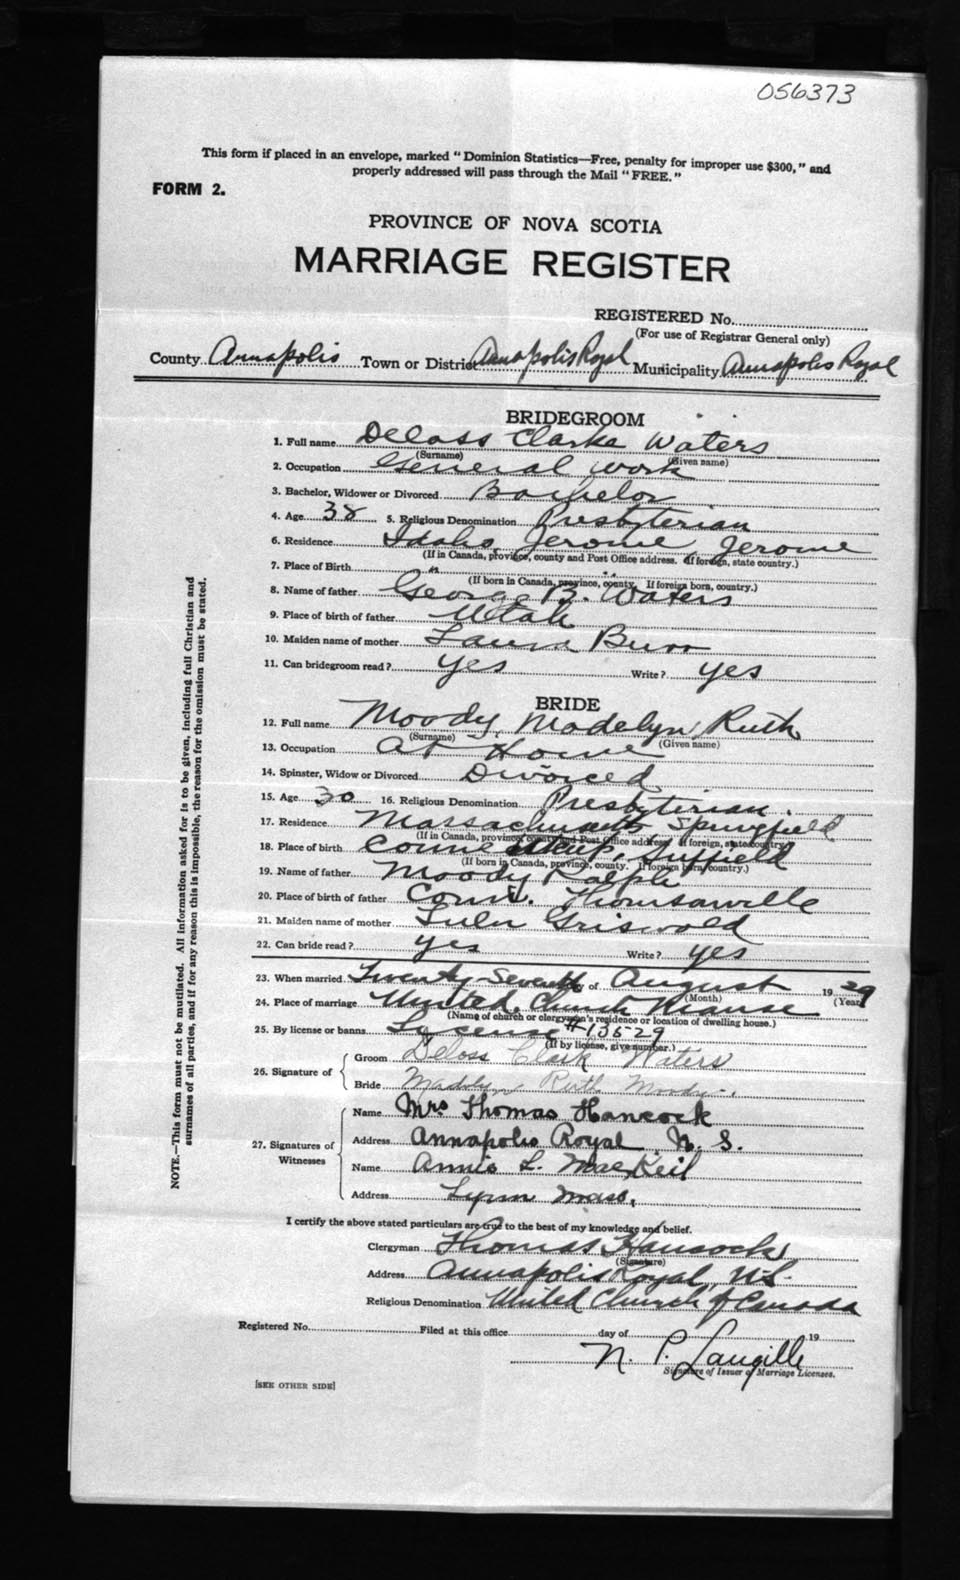 056373
This form if placed in an envelope, marked "Dominion Statistics—Free, penalty for improper use $300," and
properly addressed will pass through the Mail "FREE."
FORM 2.
PROVINCE OF NOVA SCOTIA
MARRIAGE REGISTER
REGISTERED No.
(For use of Registrar General only)
County Annapolis Town or District Annapolis Royal Municipality Annapolis Royal
BRIDEGROOM
1. Full name Deloss Clarke Waters
(Surname) (Given name)
2. Occupation General work
3. Bachelor, Widower or Divorced Bachelor
4. Age 38 5. Religious Denomination Presbyterian
6. Residence Idaho, Jerome, Jerome
(If in Canada, province, county and Post Office address. If foreign, state country.)
7. Place of Birth " "
(If born in Canada, province, county. If foreign born, country.)
8. Name of father George B. Waters
9. Place of birth of father Utah
10. Maiden name of mother Laura Burr
11. Can bridegroom read? yes Write? yes
BRIDE
12. Full name Moody, Madelyn Ruth
(Surname) (Given name)
13. Occupation At Home
14. Spinster, Widow or Divorced Divorced
15. Age 30 16. Religious Denomination Presbyterian.
17. Residence Massachusetts Springfield
(If in Canada, province, county and Post Office address. If foreign, state country.)
18. Place of birth Connecticut, Suffield
(If born in Canada, province, county. If foreign born, country.)
19. Name of father Moody Ralph
20. Place of birth of father Conn. Thomsonville
21. Maiden name of mother Lulu Griswold
22. Can bride read? yes Write? yes
23. When married Twenty-Seventh day of August 1929
(Month) (Year)
24. Place of marriage United Church Manse
(Name of church or clergyman's residence or location of dwelling house.)
25. By license or banns Lycense #13529
(If by license, give number.)
26. Signature of
Groom Deloss Clark Waters
Bride Madelyn Ruth Moody.
27. Signatures of Witnesses
Name Mrs Thomas Hancock
Address Annapolis Royal N. S.
Name Annie L. MacKeil
Address Lynn Mass.
I certify the above stated particulars are true to the best of my knowledge and belief.
Clergyman Thomas Hancock
(Signature)
Address Annapolis Royal, N.S.
Religious Denomination United Church of Canada
Registered No. Filed at this office day of 19
N. P. Langille
Signature of Issuer of Marriage Licenses.
[SEE OTHER SIDE]
NOTE.—This form must not be mutilated. All information asked for is to be given, including full Christian and
surnames of all parties, and if for any reason this is impossible, the reason for the omission must be stated.